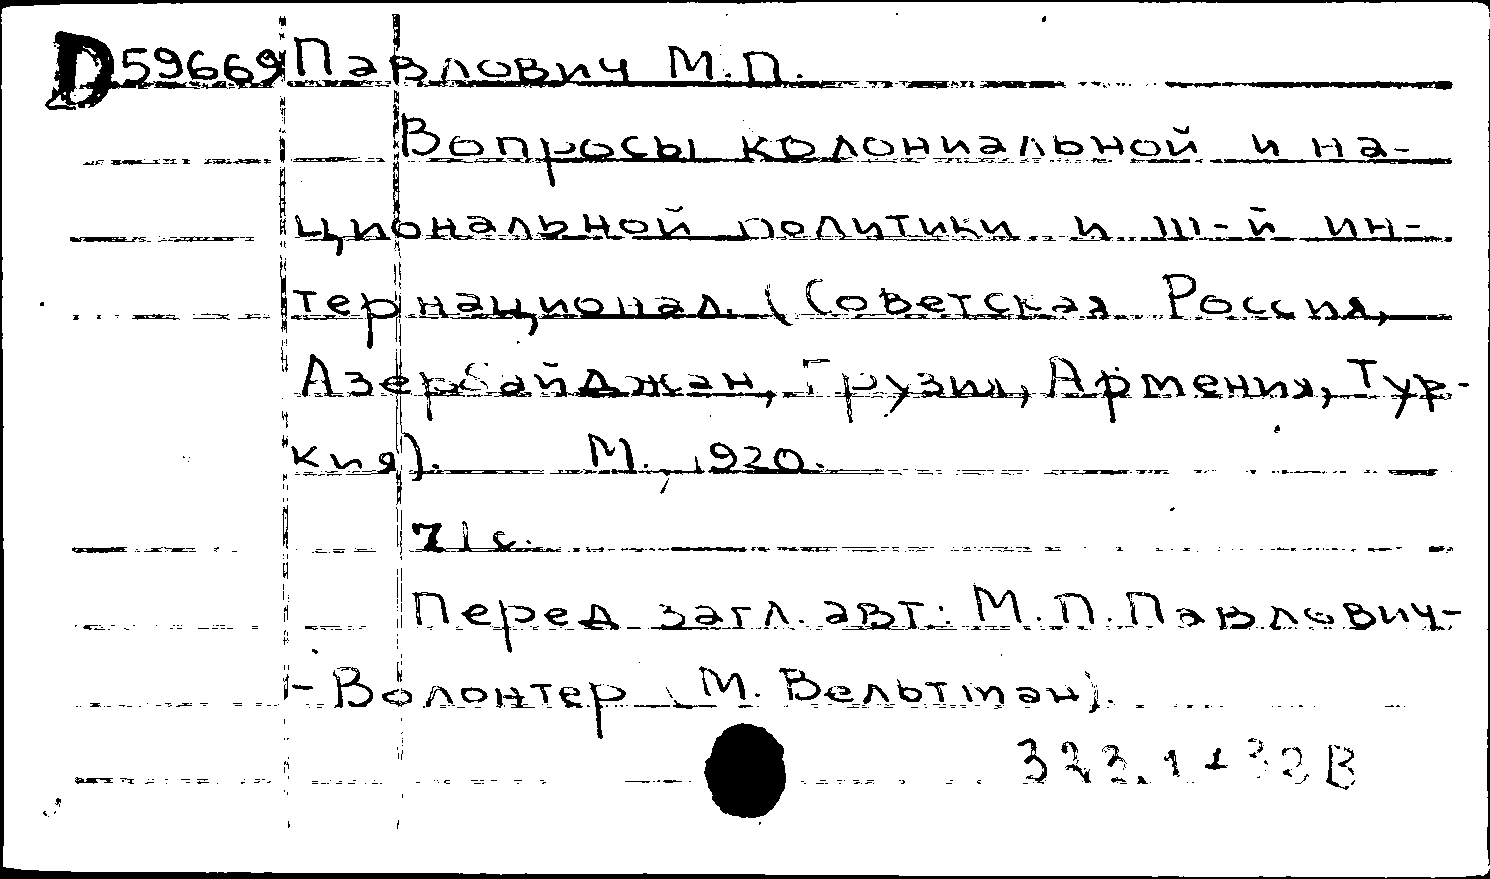 D59669 Павлович М.П.
Вопросы колониальной и на-
циональной политики и III-й ин-
тернационал. (Советская Россия,
Азербайджан, Грузия, Армения, Тур-
кия). М., 1920.
71 с.
Перед загл. авт.: М.П. Павлович-
-Волонтер (М. Вельтман).
323.1+32В